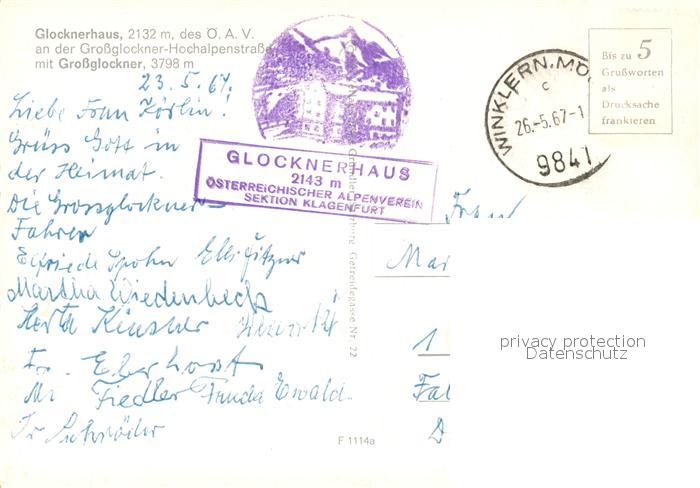 Glocknerhaus, 2132 m, des Ö. A. V.
an der Großglockner-Hochalpenstraße
mit Großglockner, 3798 m
23. 5. 67.
Liebe Frau Körlin!
Grüss Gott in
der Heimat.
Die Grossglockner-
Fahrer
Elfriede Spohn
Martha Wiedenbeck
Herta
Fr. Eberhost
Fiedler Ewald.
Fr. Schröder
GLOCKNERHAUS
2143 m
ÖSTERREICHISCHER ALPENVEREIN
SEKTION KLAGENFURT
Getreidegasse Nr. 22
F 1114a
WINKLERN, MÖ
c
26.-5.67-1
9841
Bis zu 5
Grußworten
als
Drucksache
frankieren
Frau
Mar
1
Fal
D
privacy protection
Datenschutz